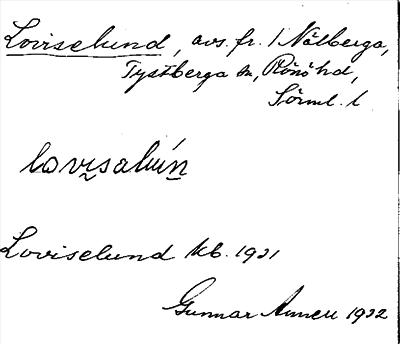 Loviselund, avs. fr. 1 Nålberga,
Tystberga sn, Rönö hd,
Sörml. l
lovisalún
Loviselund kb. 1921
Gunnar 1922